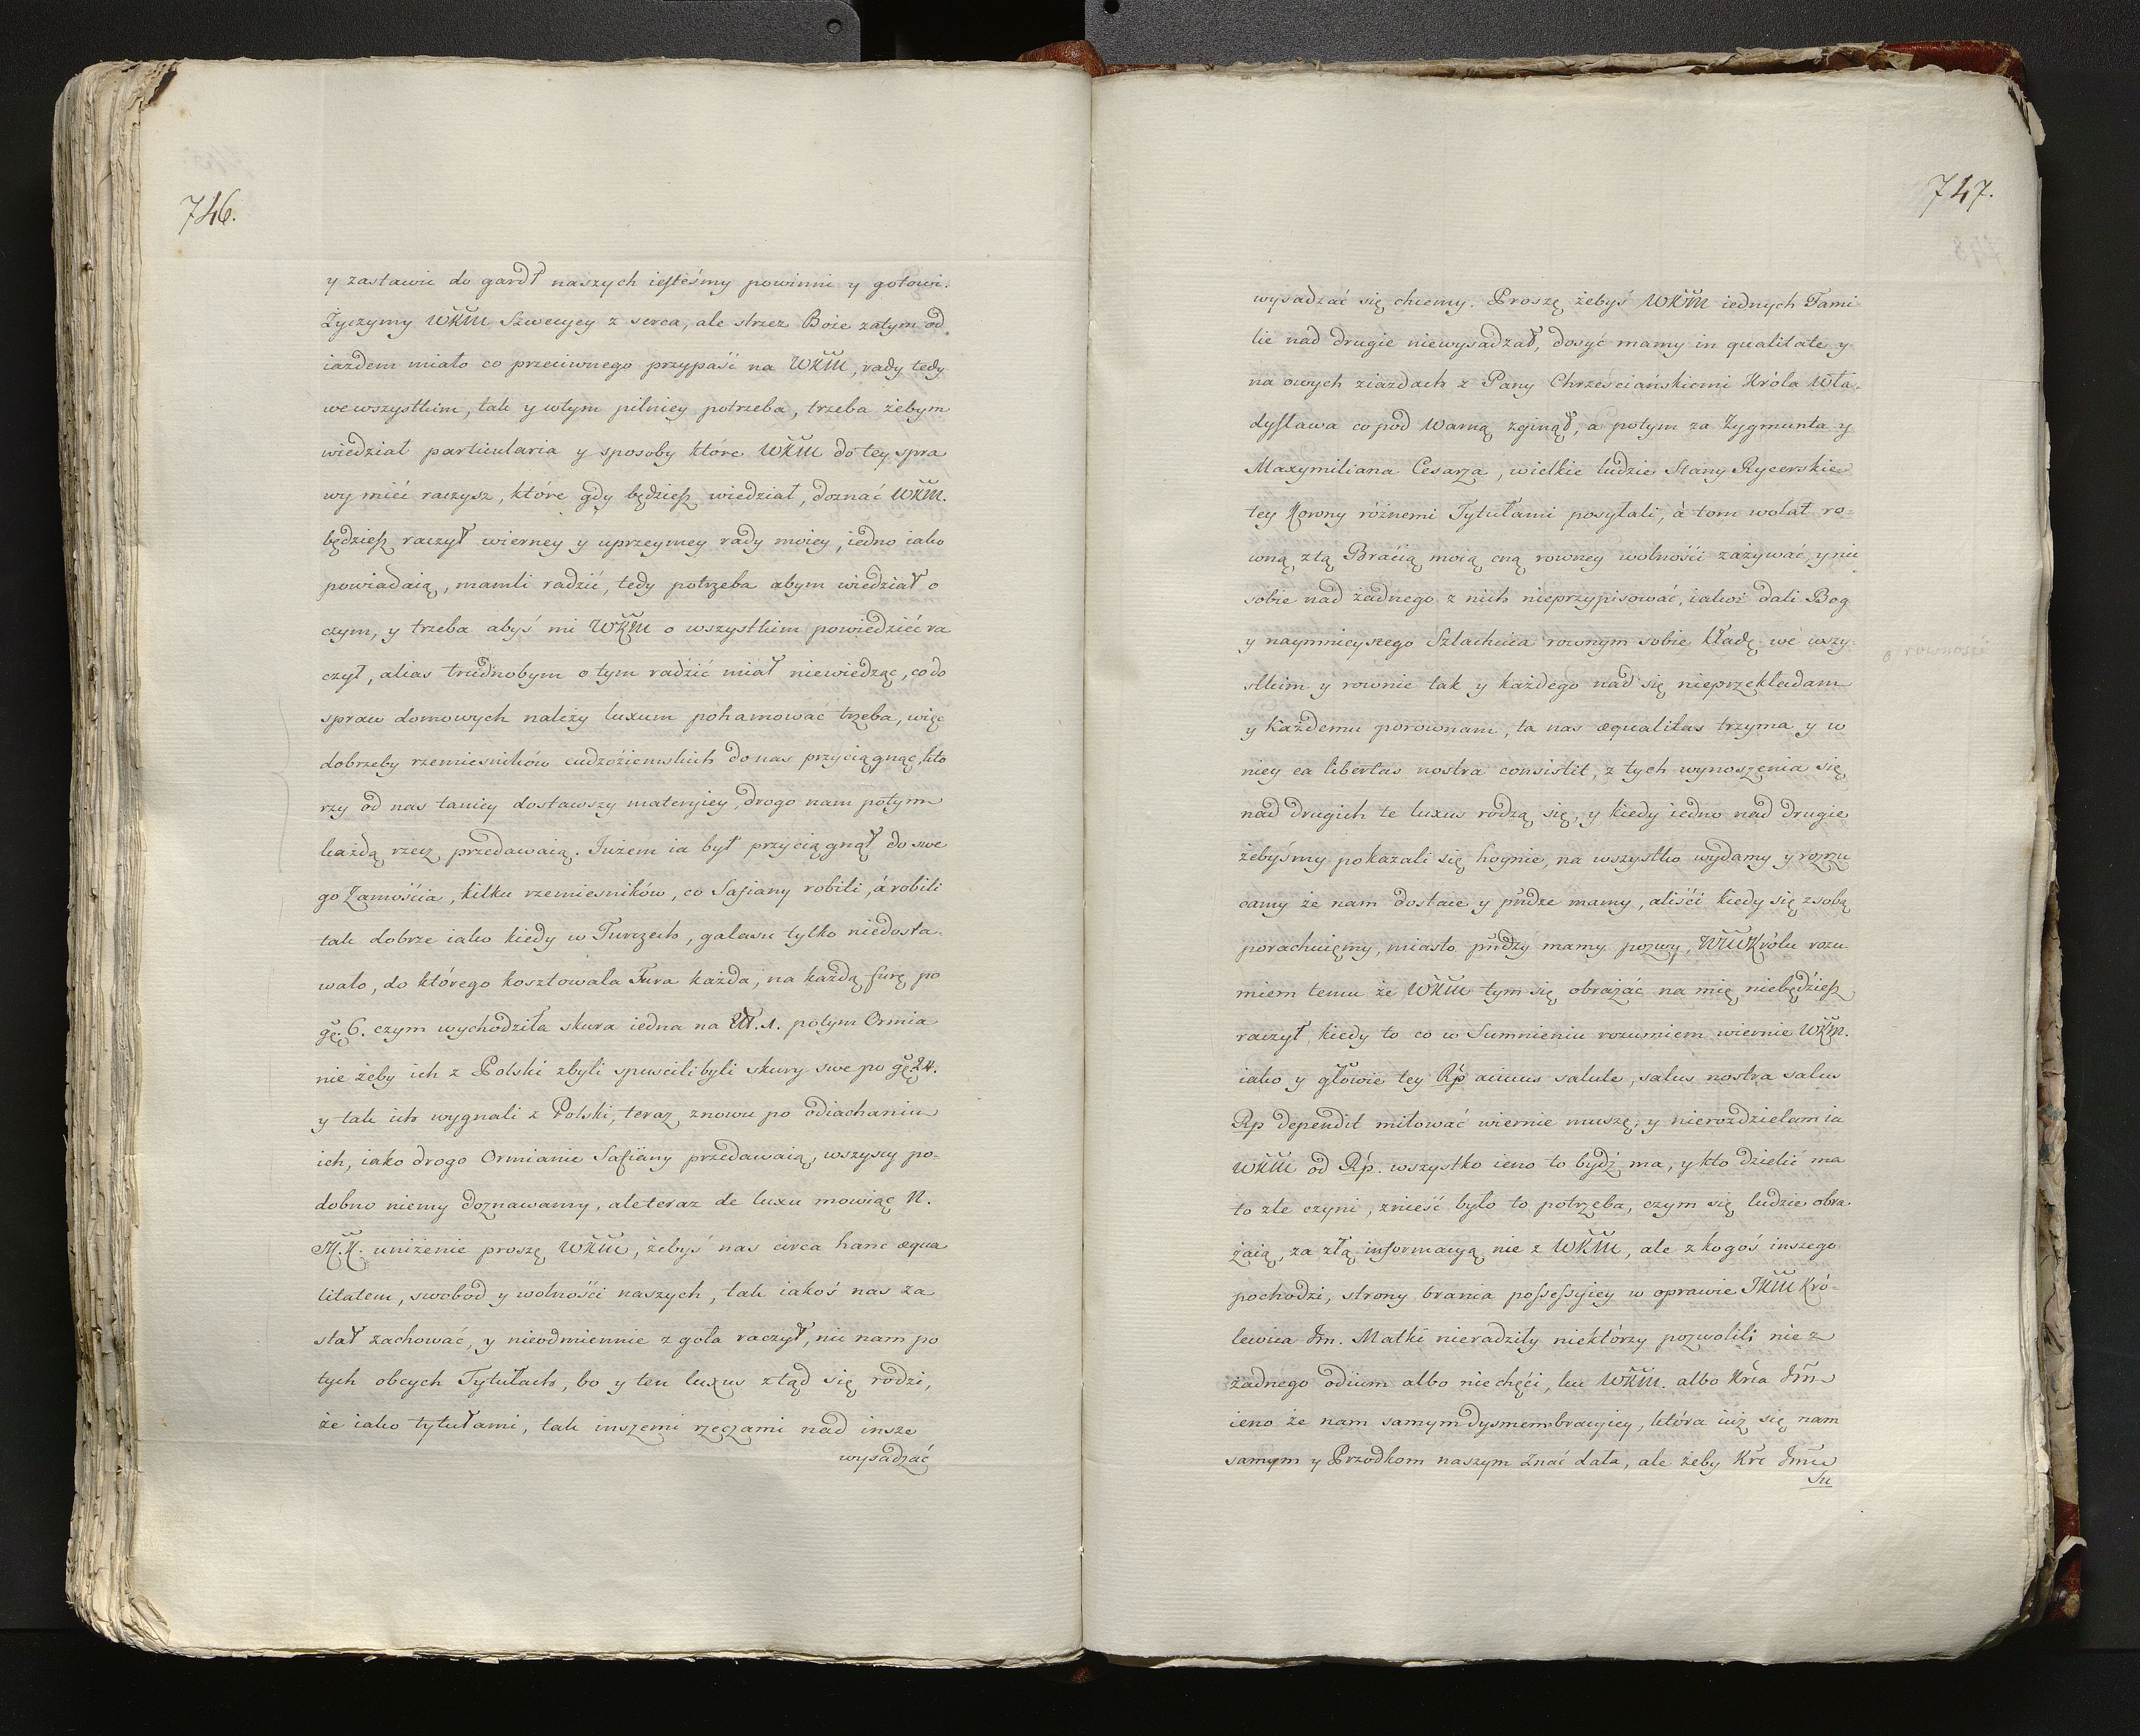 746.
y zastawić do gardł naszych iesteśmy powinni y gotowi.
Życzymy WKM Szwecyey z serca, ale strzez Boże zatym od
iazdem miało co przeciwnego przypaść na WKM, rady tedy
we wszystkim, tak y wtym pilniey potrzeba, trzeba żebym
wiedział particularia y sposoby które WKM do tey spra
wy mieć raczysz, które gdy będziesz wiedział, doznać WKM.
będziesz raczył wierney y uprzeymey rady moiey, iedno iako
powiadaią, mamli radzić, tedy potrzeba abym wiedział o
czym, y trzeba abyś mi WKM o wszystkim powiedzieć ra
czył, alias trudnobym o tym radzić miał niewiedząc, co do
spraw domowych należy luxum pohamować trzeba, więc
dobrzeby rzemiesników cudzoziemskich do nas przyciągnąć, któ
rzy od nas taniey dostawszy materyiey, drogo nam potym
każdą rzecz przedawaią. Jużem ia był przyciągnął do swe
go Zamościa, kilku rzemiesników, co Safiany robili, á robili
tak dobrze iako kiedy w Turczech, galasu tylko niedosta-
wało, do którego kosztowała Fura każda, na każdą furę po
gę: 6. czym wychodziła skura iedna na Zł. 1. potym Ormia
nie żeby ich z Polski zbyli spuscili byli skury swe po gę 24.
y tak ich wygnali z Polski, teraz znowu po odiachaniu
ich, iako drogo Ormianie Safiany przedawaią, wszyscy po-
dobno niemy doznawamy, ale teraz de luxu mowiąc N.
M. K. uniżenie proszę WKM, żebyś nas circa hanc æqua
litatem, swobod y wolności naszych, tak iakoś nas za
stał zachować, y nieodmiennie zgoła raczył, nic nam po
tych obcych Tytułach, bo y ten luxus ztąd się rodzi,
że iako tytułami, tak inszemi rzeczami nad insze
wysadzać
747.
wysadzać się chcemy. Proszę żebyś WKM iednych Fami
lie nad drugie niewysadzał, dosyć mamy in qualitate y
na owych ziazdach z Pany Chrześciańskiemi Króla Wła-
dysława co pod Warną zginął, a potym za Zygmunta y
Maxymiliana Cesarza, wielkie ludzie Stany Rycerskie
tey Korony różnemi Tytułami posyłali, à tom wolał ro-
wną ztą Bracią moią cną rowney wolności zażywać, y nic
sobie nad żadnego z nich nieprzypisować, iakoż dali Bog
y naymnieyszego Szlachcica rownym sobie kładę we wszy-
stkim y rownie tak y każdego nad się nieprzekładam
o rownosci
y każdemu porownam, ta nas æqualitas trzyma y w
niey ea libertas nostra consistit, z tych wynoszenia się
nad drugich te luxus rodzą się, y kiedy iedno nad drugie
żebyśmy pokazali się hoynie, na wszystko wydamy y rozrzu
camy że nam dostaie y pñdze mamy, aliści kiedy się zsobą
porachuięmy, miasto pñdzy mamy pozwy, WMKrólu rozu
miem temu że WKM tym się obrażać na mię niebędziesz
raczył, kiedy to co w Sumnieniu rozumiem wiernie WKM.
iako y głowie tey Rp cuius salute, salus nostra salus
Rp dependit miłować wiernie muszę, y nierozdzielam ia
WKM od Rp. wszystko ieno to bydź ma, y kto dzielić ma
to zle czyni, znieść było to potrzeba, czym się ludzie obra
żaią, za złą informacyą nie z WKM, ale z kogoś inszego
pochodzi, strony brania possessyiey w oprawie JKM Kró-
lewica Jm. Matki nieradziły niektórzy pozwolili nie z
żadnego odium albo niechęci, ku WKM. albo Kr̃ca Jm̃
ieno że nam samym dysmembracyiey, która iuż się nam
samym y Przodkom naszym znać dała, ale żeby Kr̃c Jm̃c
Su